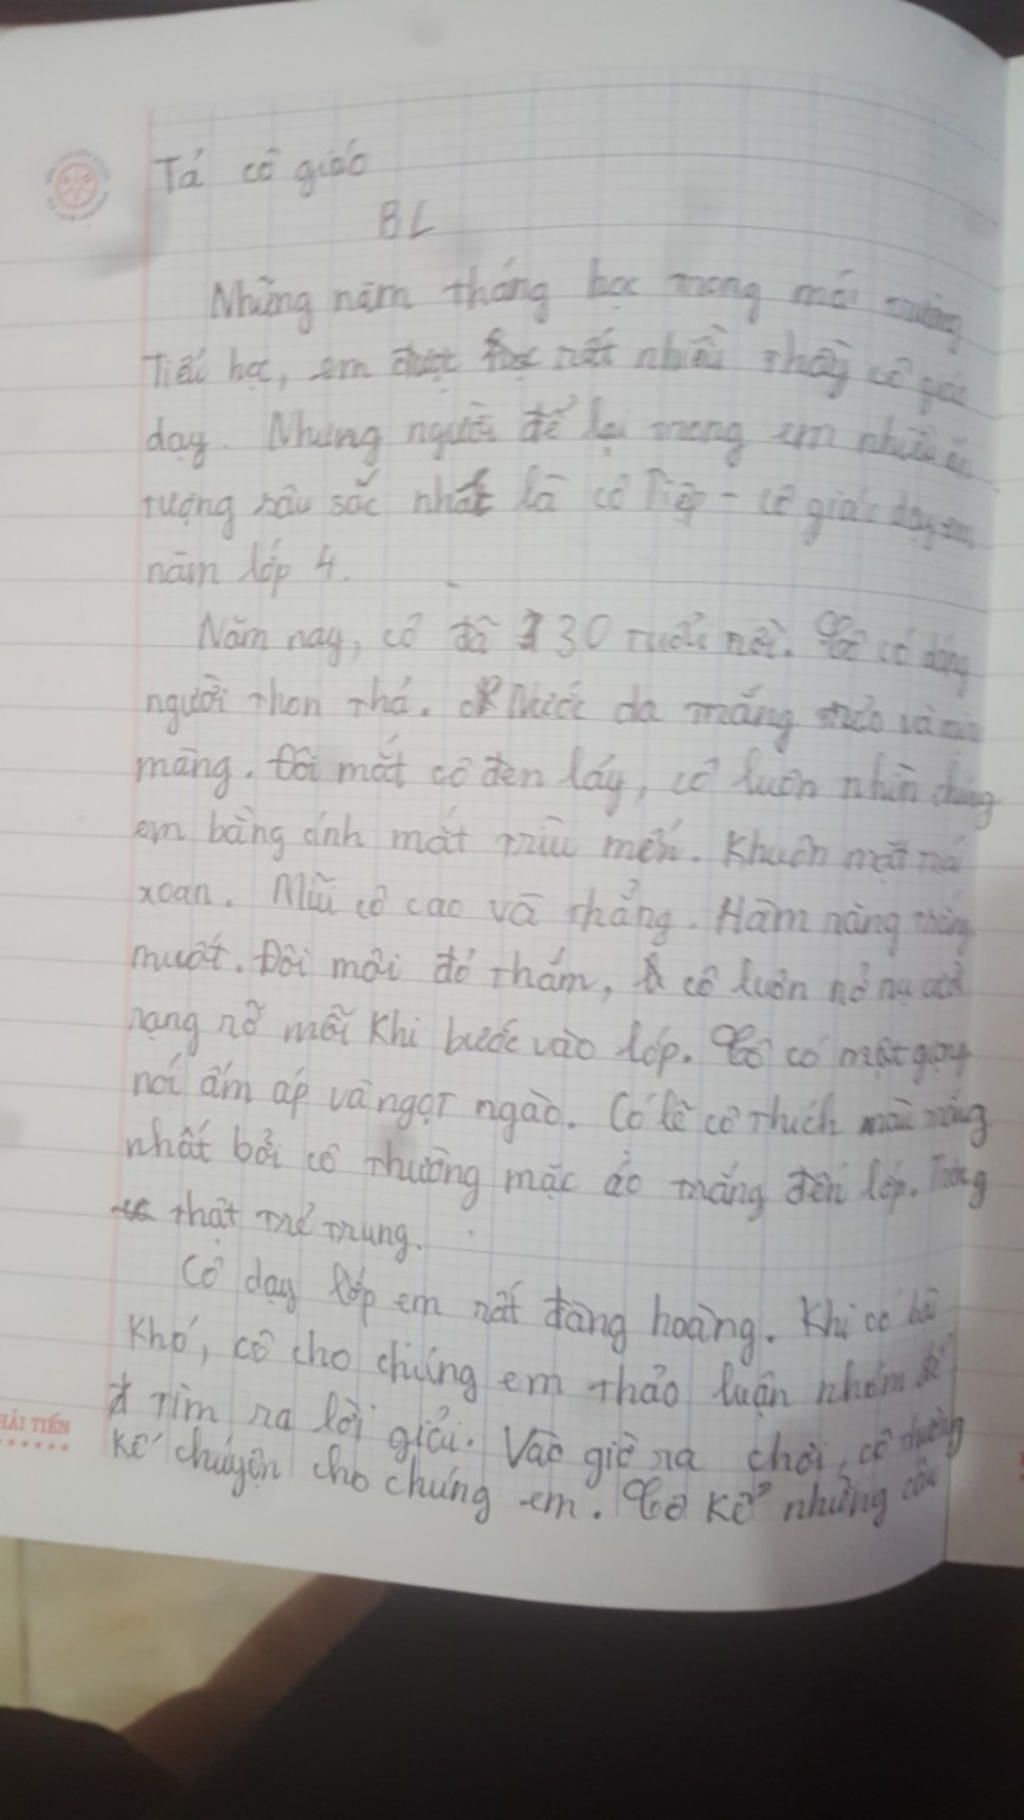 Tả cô giáo
BL
Những năm tháng học trong mái trường
Tiểu học, em được học rất nhiều thầy cô giáo
dạy. Nhưng người để lại trong em nhiều ấn
tượng sâu sắc nhất là cô Tiệp - cô giáo dạy em
năm lớp 4.
Năm nay, cô đã 30 tuổi rồi. Cô có dáng
người thon thả. Nước da trắng trẻo và mịn
màng. Đôi mắt cô đen láy, cô luôn nhìn chúng
em bằng ánh mắt trìu mến. Khuôn mặt trái
xoan. Mũi cô cao và thẳng. Hàm răng trắng
muốt. Đôi môi đỏ thắm, cô luôn nở nụ cười
rạng rỡ mỗi khi bước vào lớp. Cô có một giọng
nói ấm áp và ngọt ngào. Có lẽ cô thích màu trắng
nhất bởi cô thường mặc áo trắng đến lớp. Trông
thật trẻ trung.
Cô dạy lớp em rất đàng hoàng. Khi có bài
khó, cô cho chúng em thảo luận nhóm để
tìm ra lời giải. Vào giờ ra chơi, cô thường
kể chuyện cho chúng em. Cô kể những câu
HẢI TIẾN